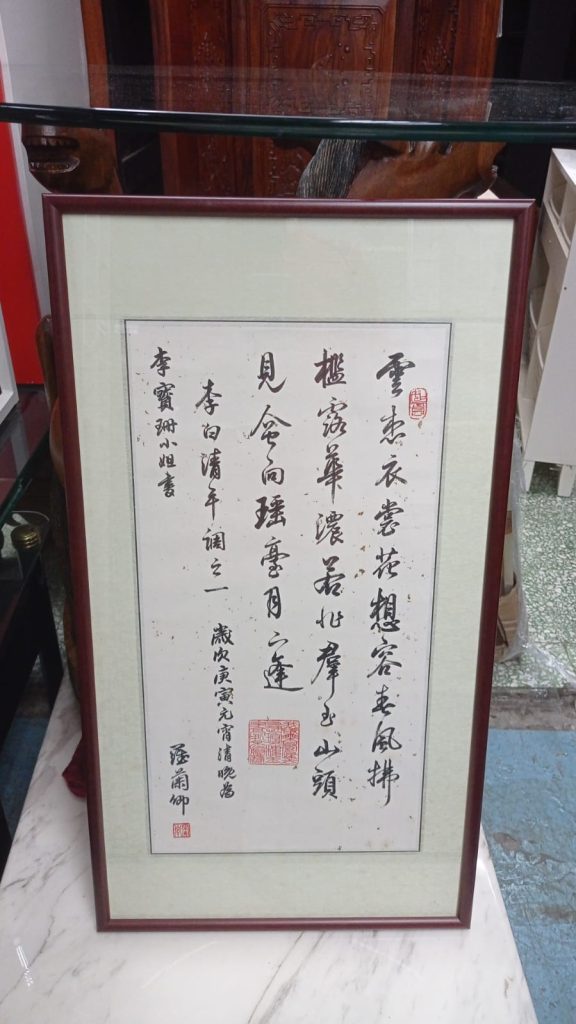 雲想衣裳花想容春風拂
檻露華濃若非羣玉山頭
見會向瑤臺月下逢
李白清平調之一
歲次庚寅元宵清晚為
李寶珊小姐書
蘭卿